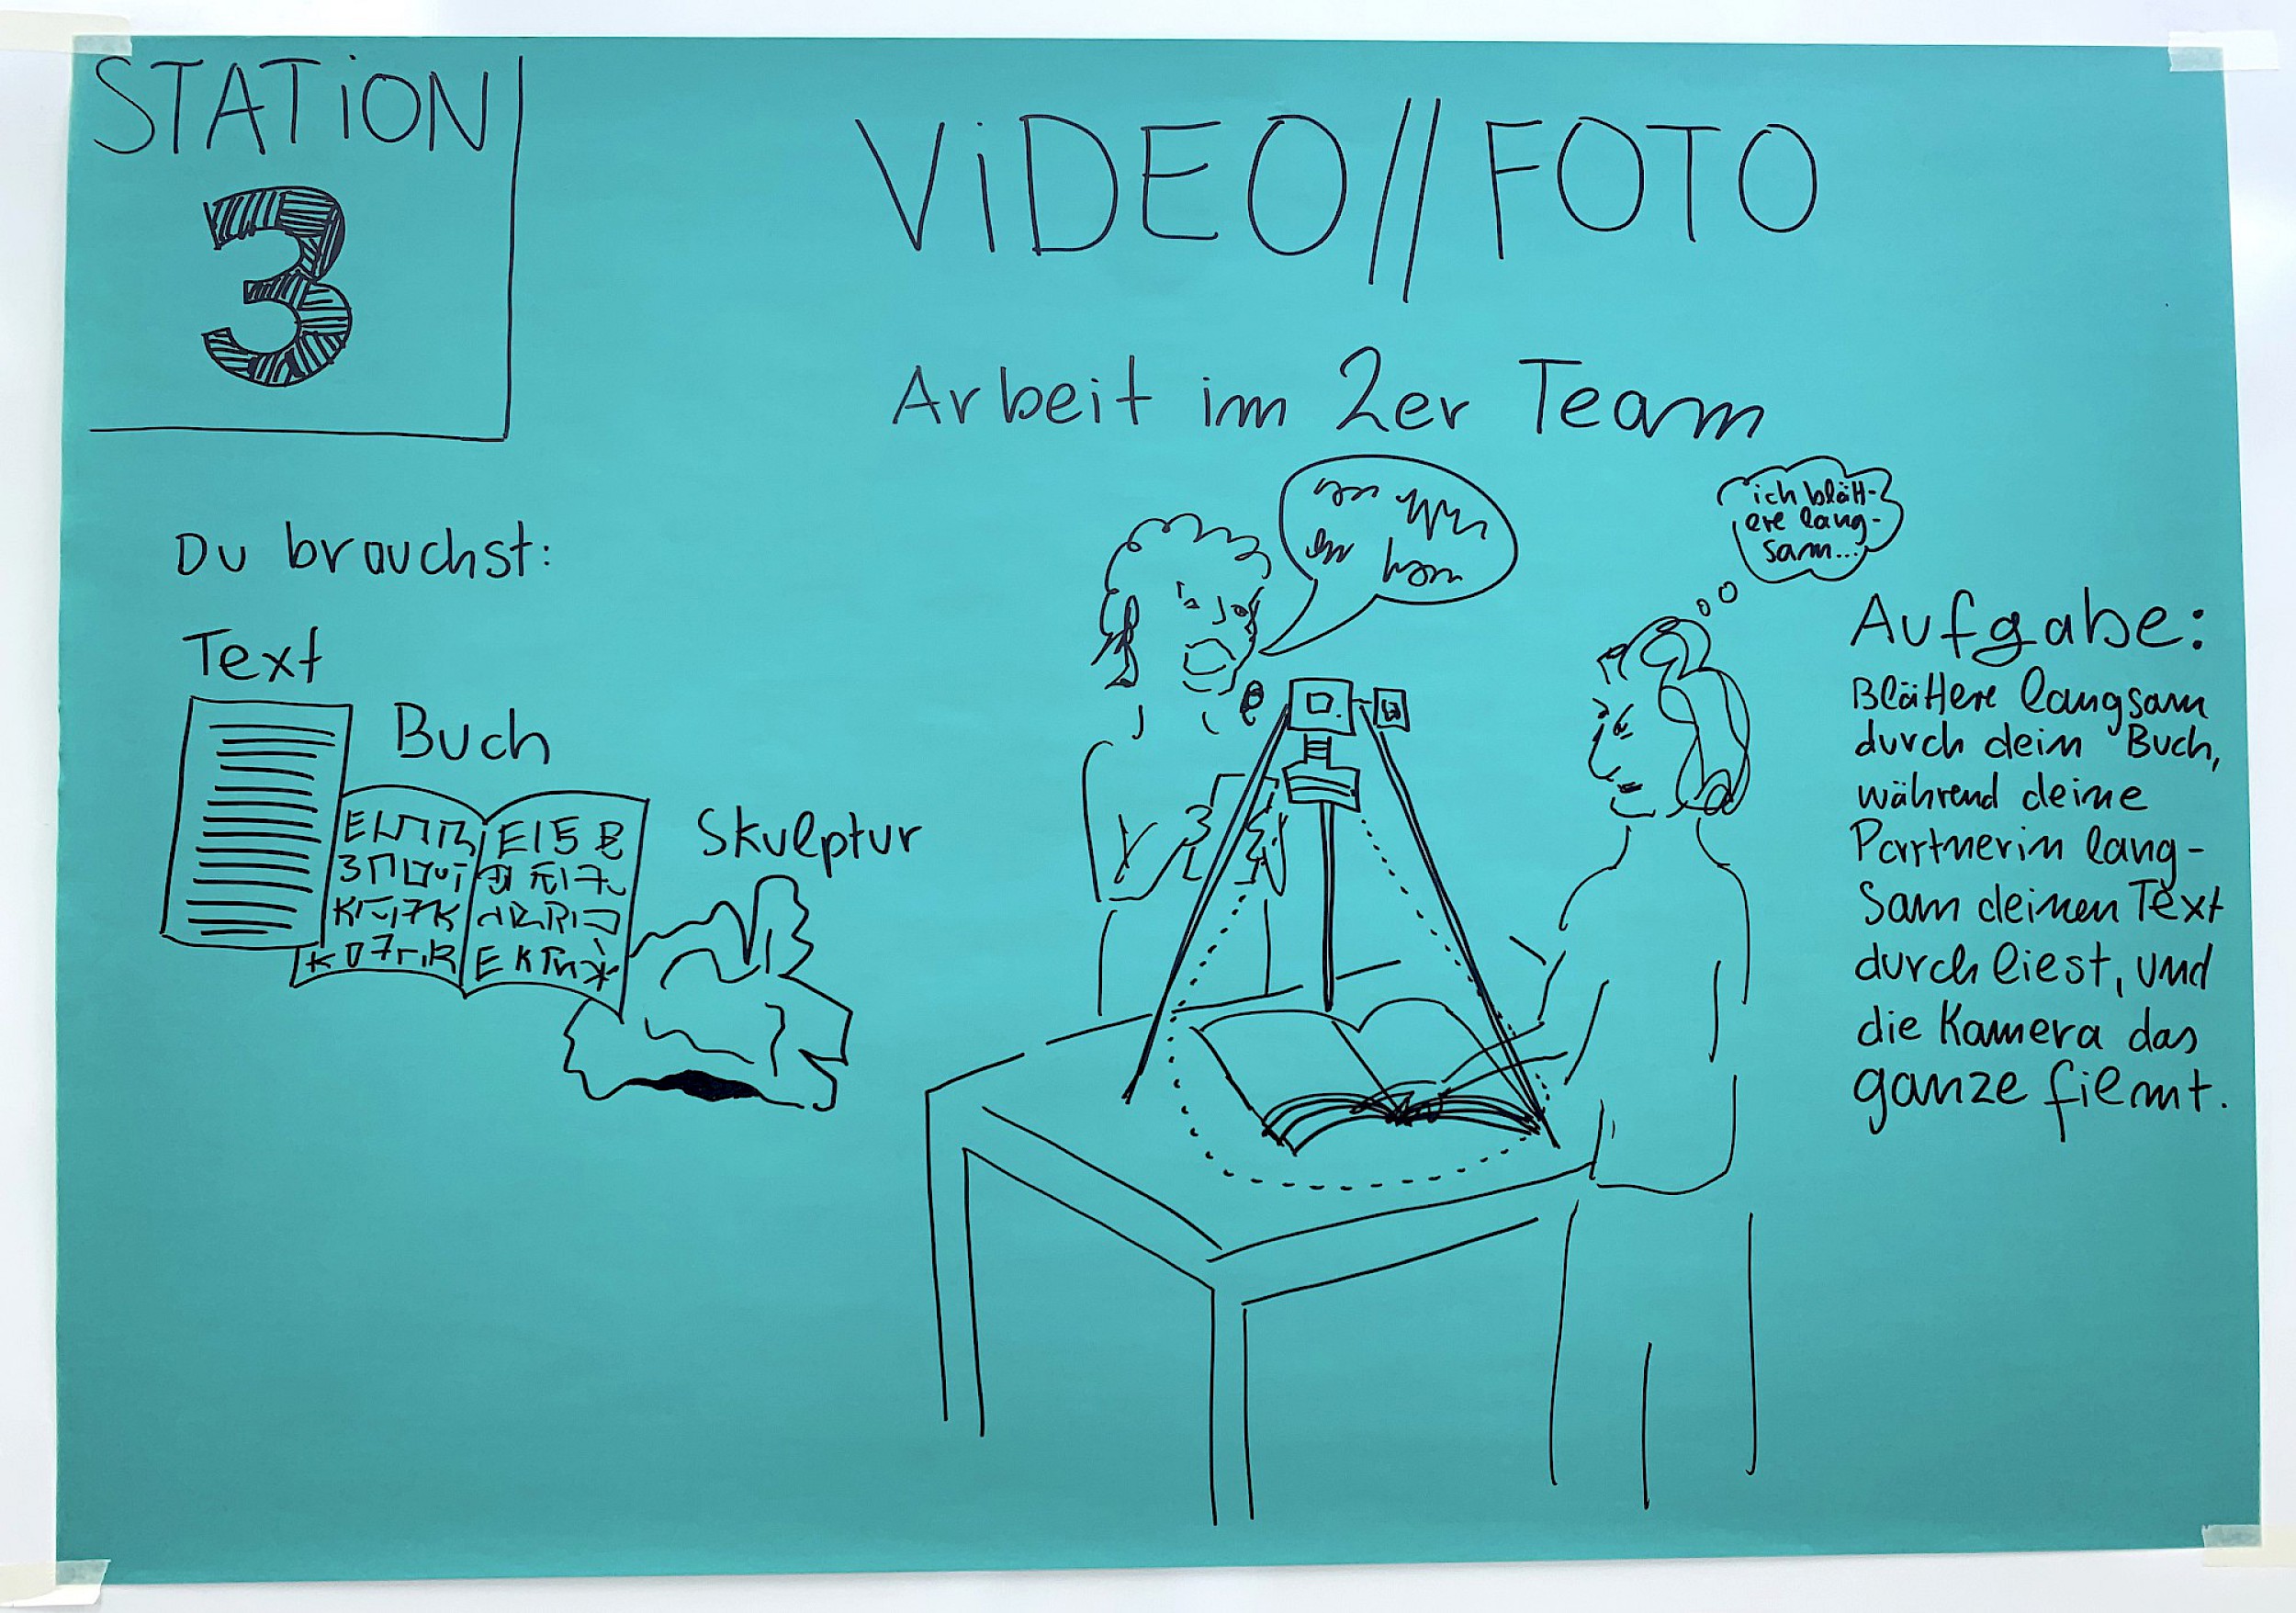 STATiON
3
ViDEO//FOTO
Arbeit im 2er Team
Du brauchst:
Text
Buch
Skulptur
ich blätt-
ere lang-
sam...
Aufgabe:
Blättere langsam
durch dein Buch,
während deine
Partnerin lang-
sam deinen Text
durchliest, und
die Kamera das
ganze filmt.